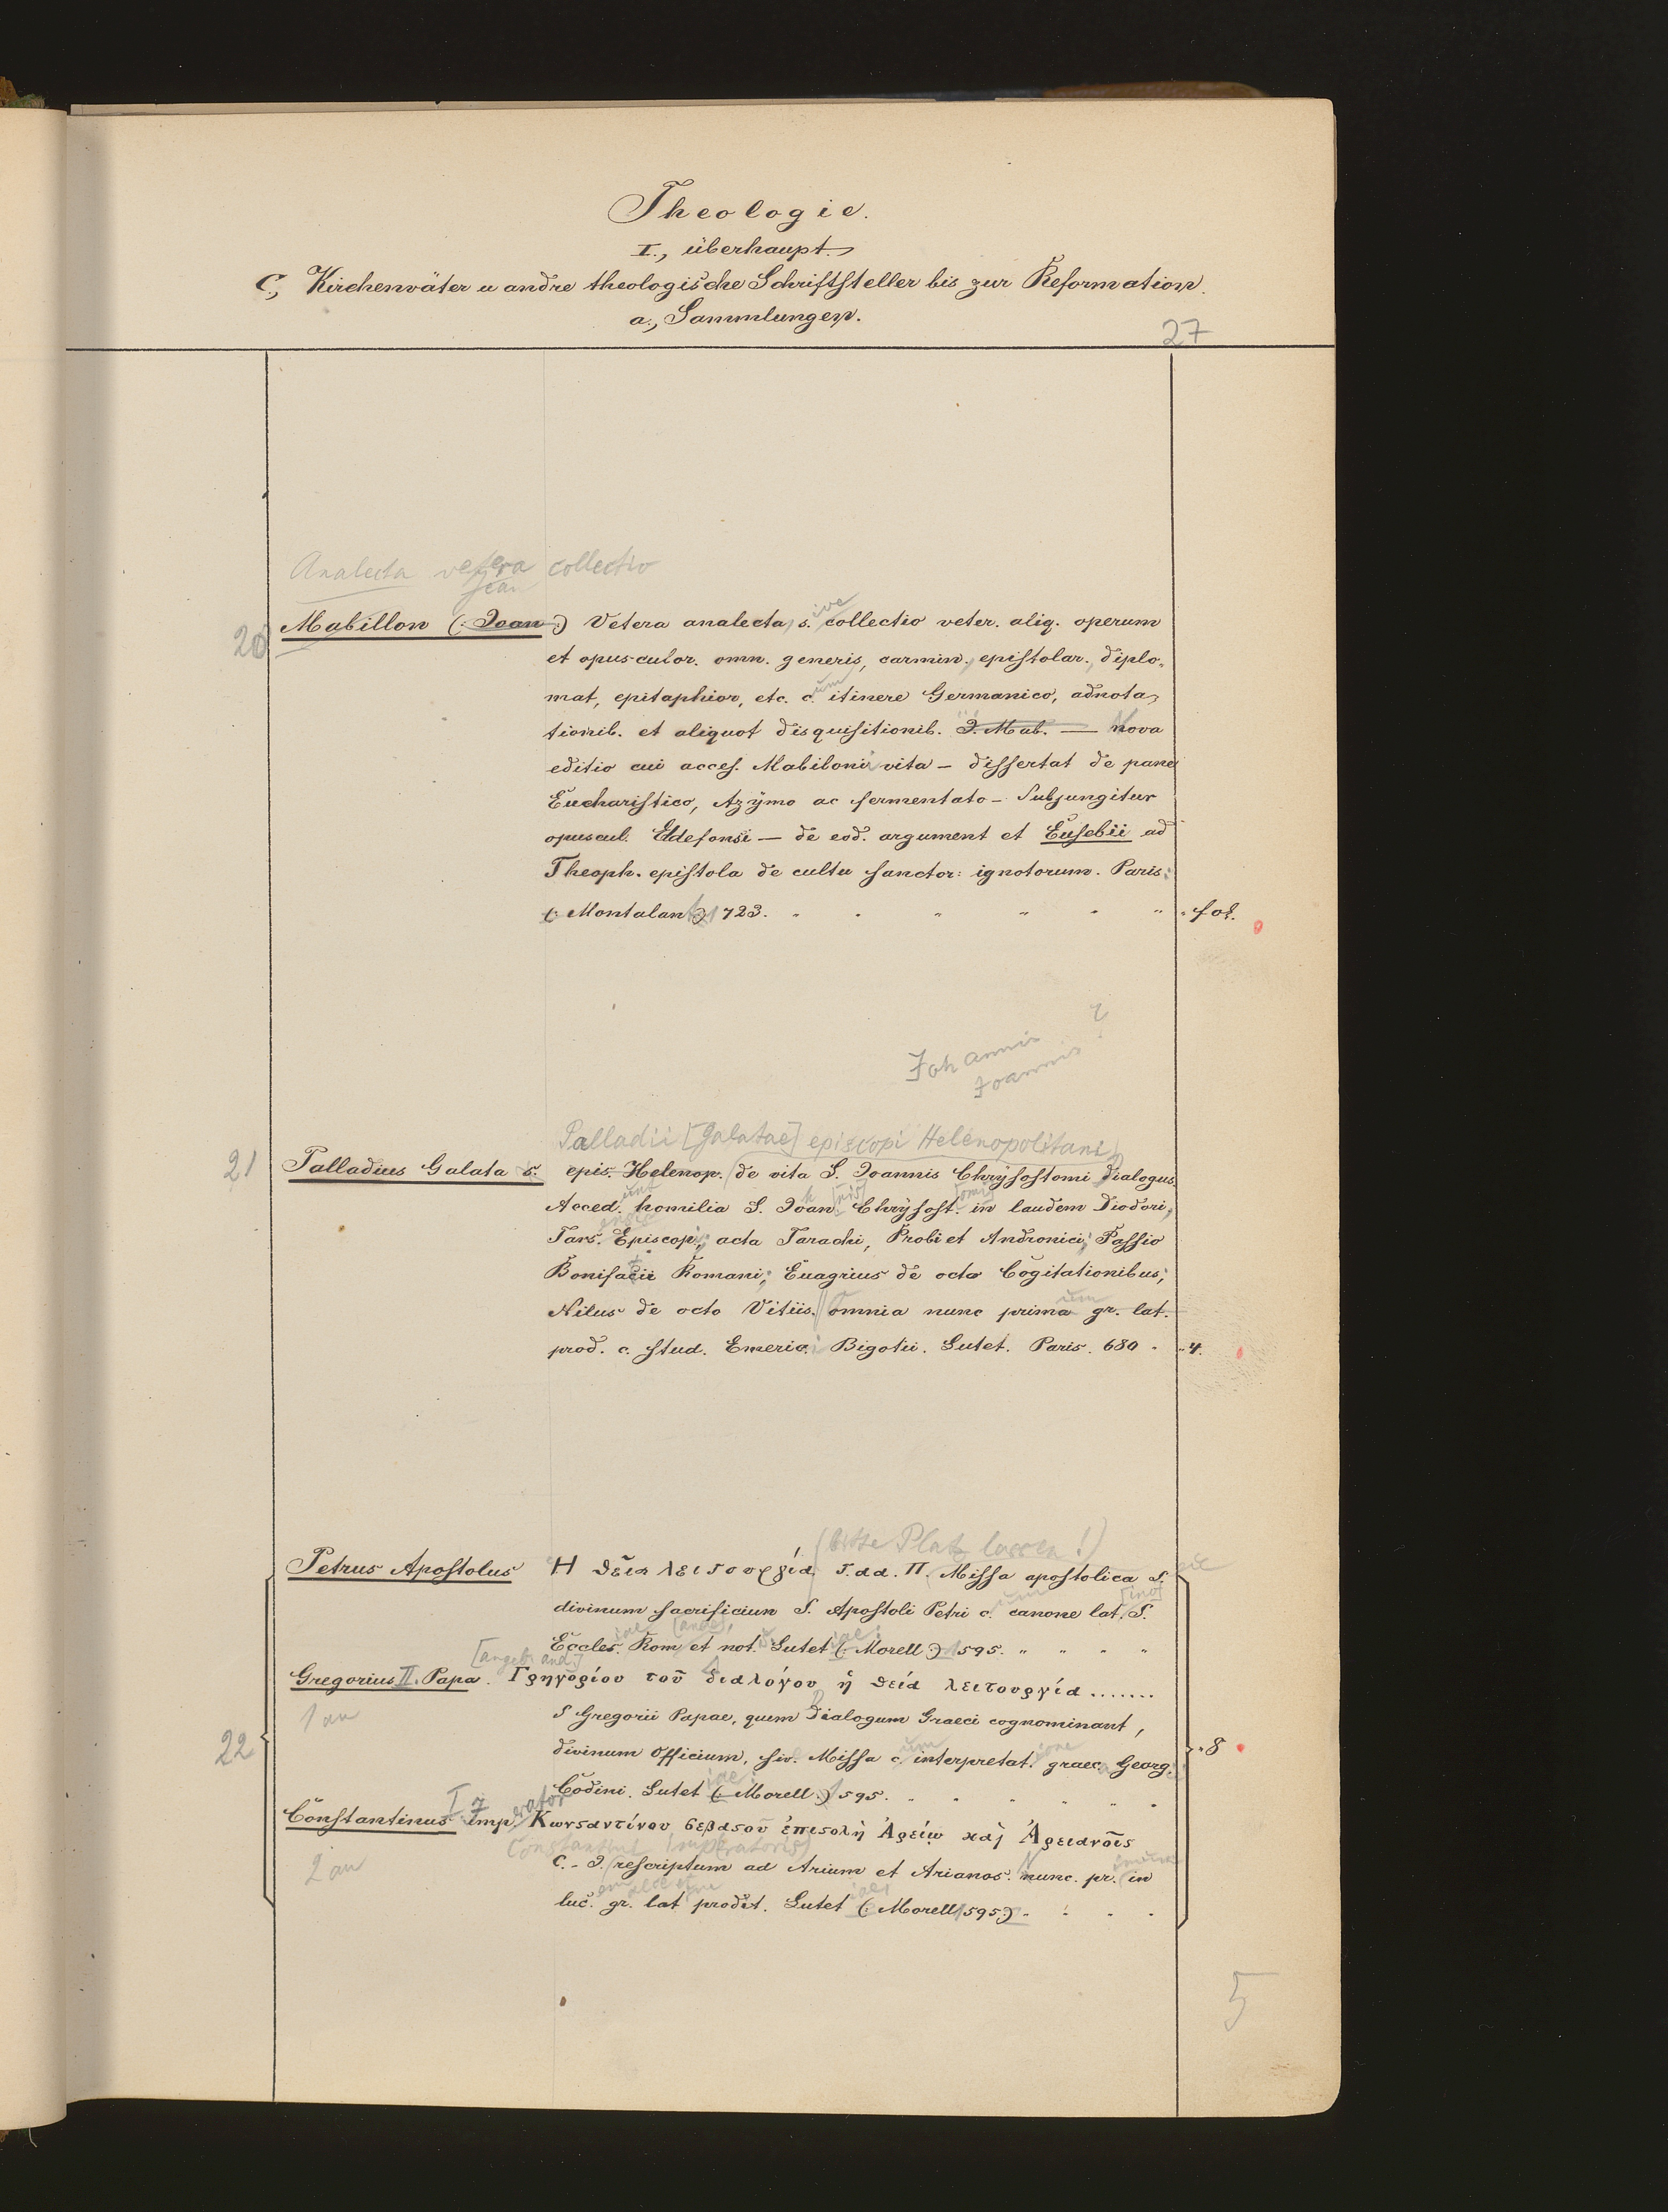 Theologie.
I., überhaupt.
C., Kirchenväter u andre theologische Schriftsteller bis zur Reformation.
a., Sammlungen.
27
Analecta vetera collectio
Jean
20 Mabillon (: Joan :) Vetera analecta, s.ive collectio veter. aliq. operum
et opusculor. omn. generis, carmin., epistolar., diplo-
mat, epitaphior, etc. c.um itinere Germanico, adnota-
tionib. et aliquot disquisitionib. J. Mab. — Nova
editio cui acces. Mabiloni vita – dissertat de pane
Eucharistico, Azymo ac fermentato – Subjungitur
opuscul. Eldefonsi — de eod. argument et Eusebii ad
Theoph. epistola de cultu sanctor: ignotorum. Paris:
(: Montalant :) 1723. " " " " " " fol.
Johannis ?
Joannis
Palladii [Galatae] episcopi Helenopolitani
21 Palladius Galata s. epis. Helenop. de vita S. Joannis Chrysostomi Dialogus.
Acced.unt homilia S. Joan. Chrysost. in laudem Diodori,
Tars.ensis Episcop., acta Tarachi, Probi et Andronici; Passio
Bonifacii Romani; Euagrius de octo Cogitationibus;
Nilus de octo Vitiis. omnia nunc prima um gr. lat.
prod. c. stud. Emeric.i Bigotii. Lutet. Paris. 680 . " 4.
(bitte Platz lassen!)
Petrus Apostolus Η θεῖα λειτουργία τ. αα. Π. Missa apostolica S. sic
divinum sacrificiun S. Apostoli Petri c.um canone lat.[ino] S.
Eccles.iae Rom[anae], et not. Lutet.iae: (: Morell :) 1595. " " " "
[angebl. and.]
Gregorius II. Papa. Γρηγορίου τοῦ διαλόγου ἡ θεία λειτουργία .......
1 an S Gregorii Papae, quem Dialogum Graeci cognominant,
22 divinum Officium, siv. Missa c.um interpretat.ione graec. Georg. " 8
Codini. Lutet.iae: (: Morell. :) 1595. " " " " " "
Constantinus I. Imp.erator Κωνσαντίνου σεβασοῦ ἐπισολὴ Ἀρείῳ καὶ Ἀρειανοῖς
Constantini Imp(eratoris)
2 an C. - J. rescriptum ad Arium et Arianos. Nunc. pr.imum in
luc.em gr. lat prodit. Lutet.iae: (: Morell 1595 :) . . . .
5